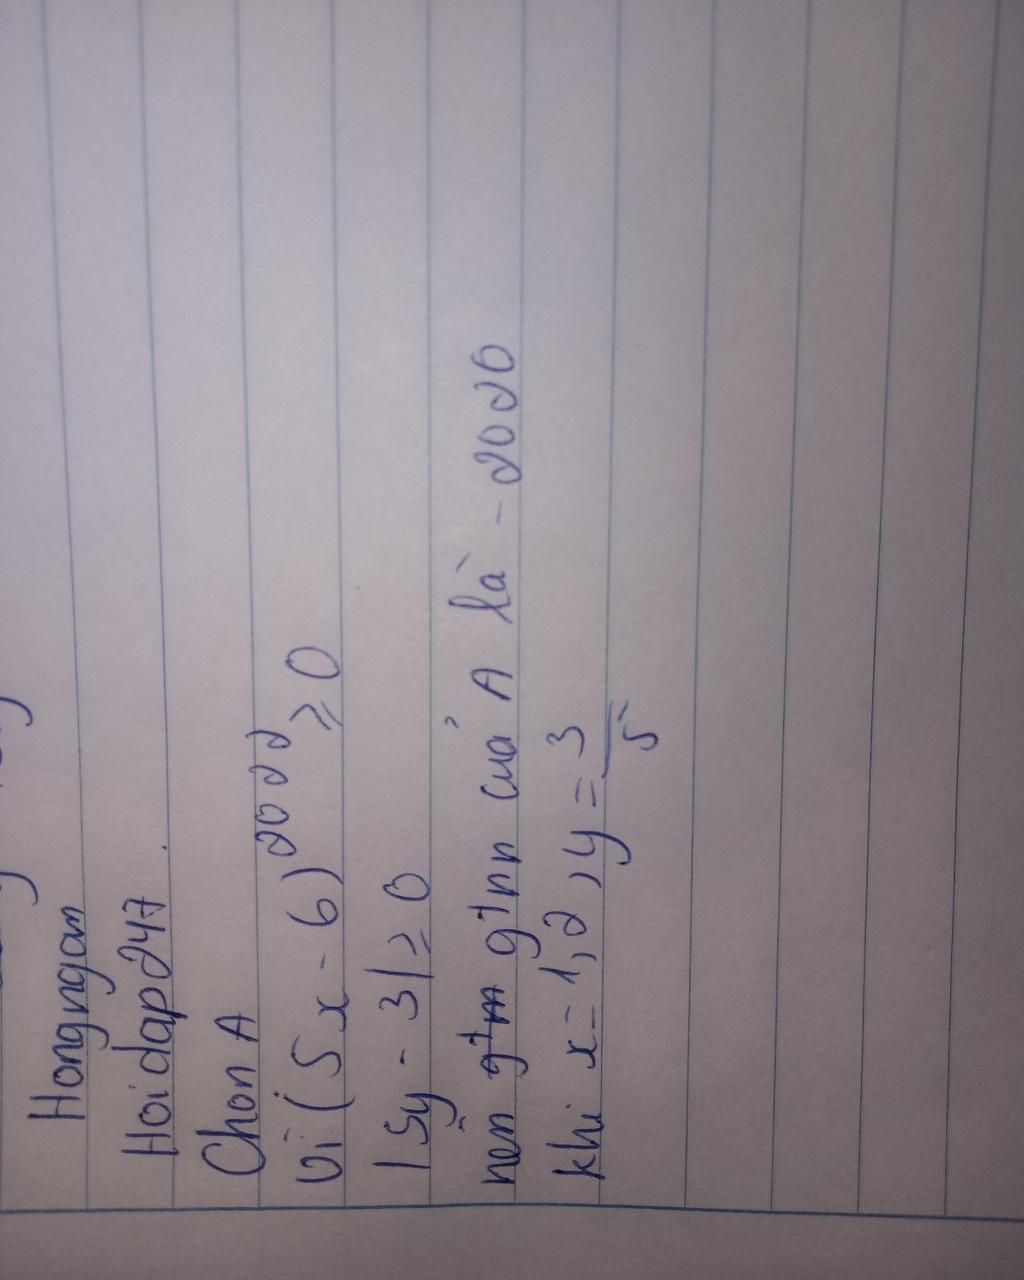 Hongngan
Hoidap247.
Chon A
Vì (5x - 6)^2022 ≥ 0
|5y - 3| ≥ 0
nên gtnn của A là -2020
khi x = 1,2, y = 3/5